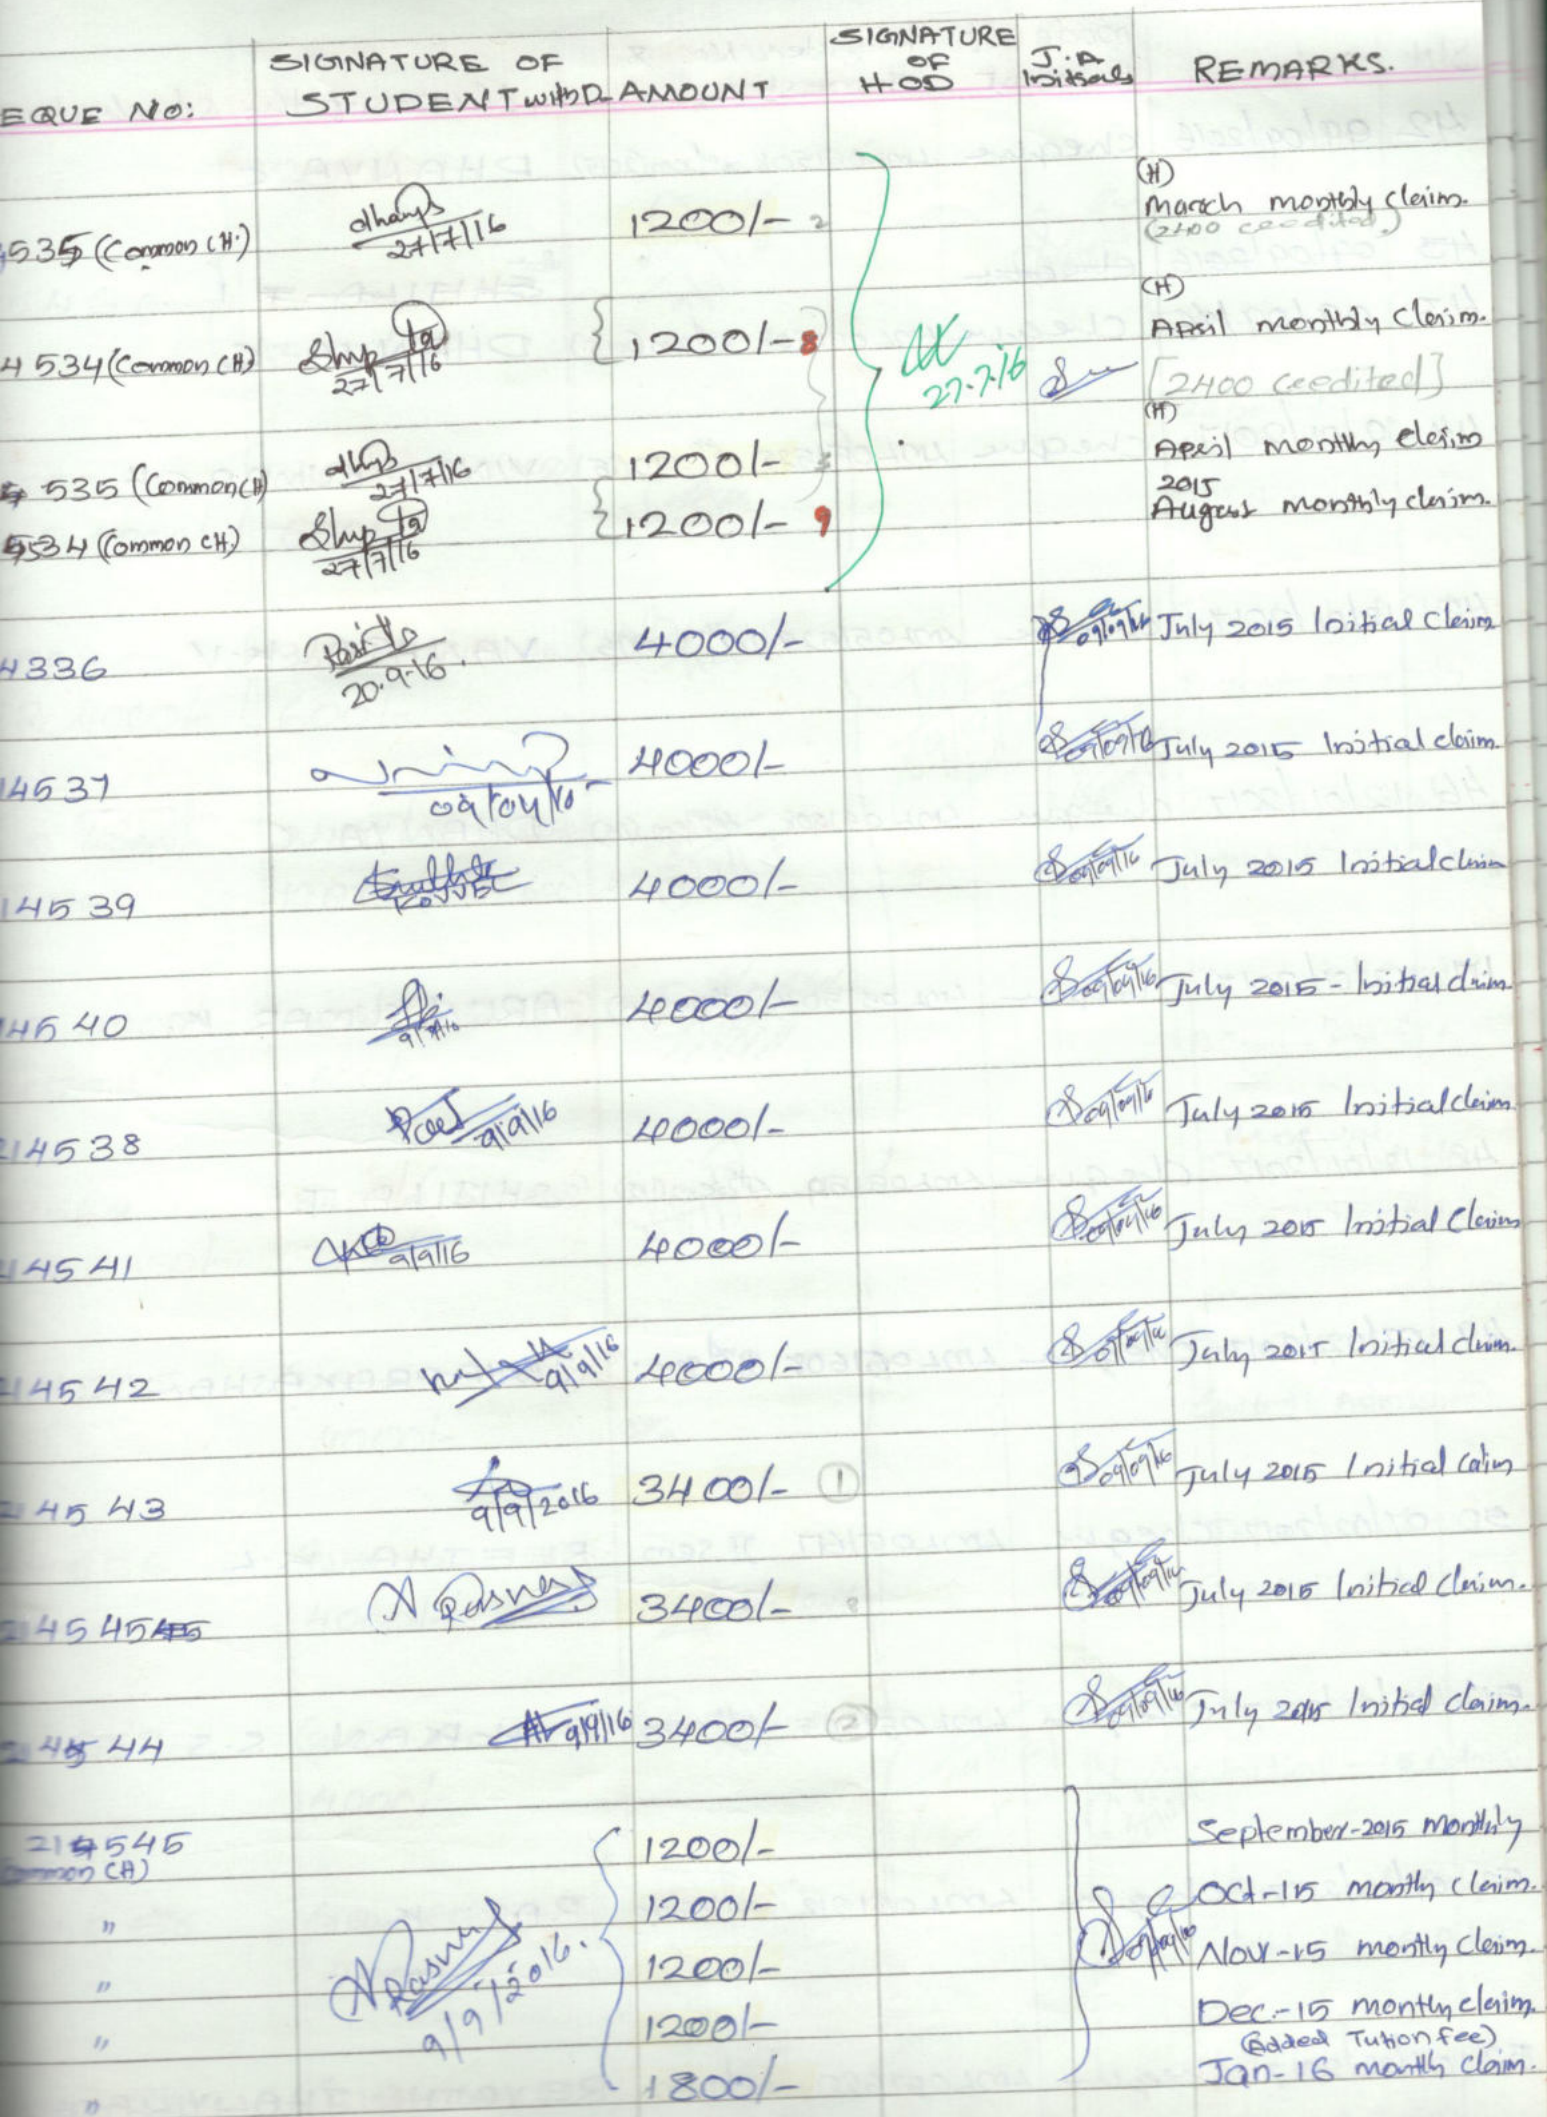 EQUE NO: SIGNATURE OF STUDENT with D- AMOUNT SIGNATURE OF HOD J.A Initials REMARKS.
535 (Common CH.) 27/7/16 1200/- 2 (H) March monthly claim.
(2400 credited.)
4534 (Common CH) 27/7/16 1200/- 8 (H) April monthly Claim.
27.7.16 [2400 credited]
535 (Common CH) 27/7/16 1200/- 3 (H) April monthly claim
2015
534 (Common CH) 27/7/16 1200/- 9 August monthly claim.
4336 20.9.16. 4000/- 09/09/16 July 2015 Initial Claim
14537 4000/- July 2015 Initial claim.
14539 4000/- 09/09/16 July 2015 Initial claim
14540 4000/- 09/09/16 July 2015 - Initial claim.
14538 9/9/16 4000/- 09/09/16 July 2015 Initial claim.
14541 9/9/16 4000/- 09/09/16 July 2015 Initial Claim
14542 9/9/16 4000/- July 2015 Initial claim.
14543 9/9/2016 3400/- 1 09/09/16 July 2015 Initial calim
214545 3400/- 09/09/16 July 2015 Initial Claim.
214544 9/9/16 3400/- 2 09/09/16 July 2015 Initial claim.
214545 1200/- September-2015 Monthly
Common (H)
" 1200/- Oct-15 monthly claim.
" 9/9/2016. 1200/- Nov-15 montly claim.
" 1200/- Dec.-15 montly claim.
(Added Tution fee)
" 1800/- Jan-16 montly claim.